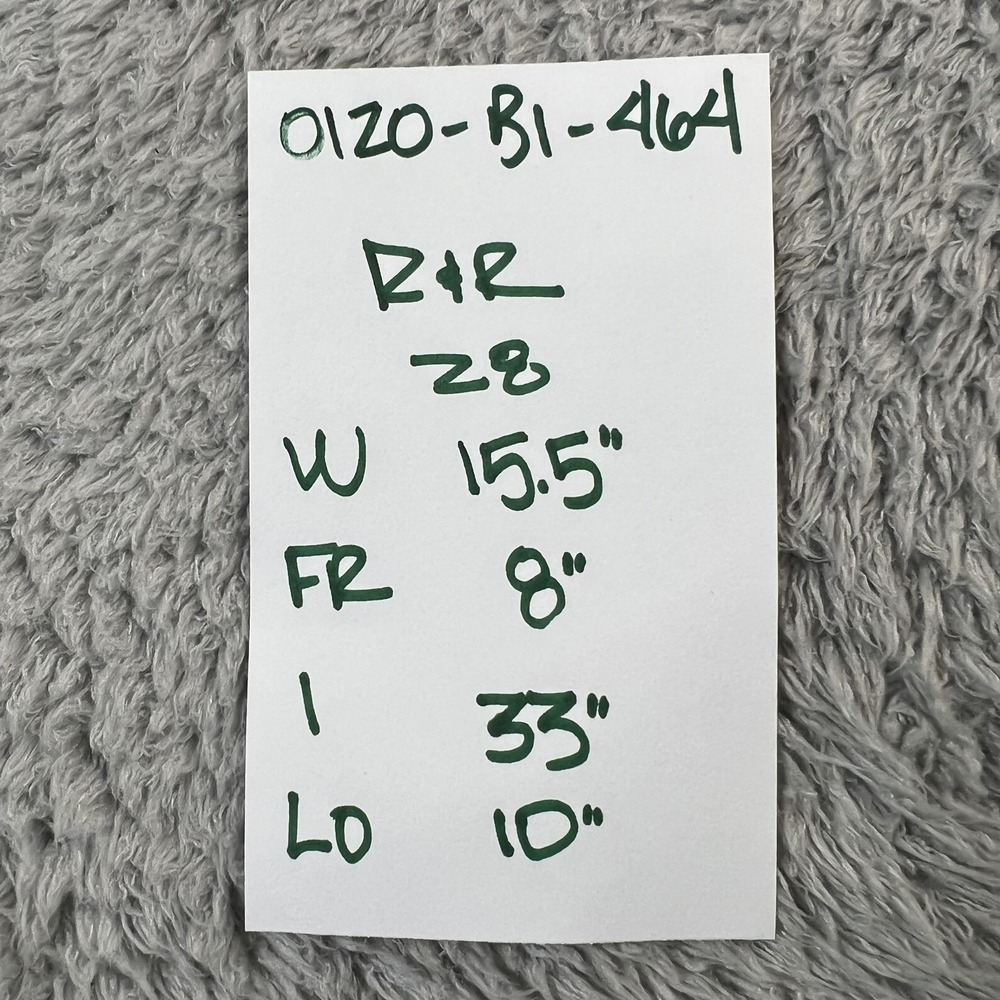 0120-B1-464
R&R
28
W 15.5"
FR 8"
I 33"
LO 10"